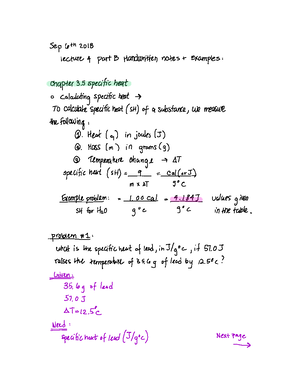 Sep 6th 2018
Lecture 4 part B Handwritten notes + Examples.
Chapter 3.5 specific heat
○ calculating specific heat →
TO calculate specific heat (SH) of a substance, we measure
the following:
① Heat (q) in joules (J)
② Mass (m) in grams (g)
③ Temperature change → ΔT
specific heat (SH) = q = cal(or J)
m x ΔT g°c
Example problem: = 1.00 cal = 4.184J values given
SH for H₂O g°c g°c in the table.
problem #1.
what is the specific heat of lead, in J/g°c, if 57.0J
raises the temperature of 35.6g of lead by 12.5°c?
Given:
35.6g of lead
57.0 J
ΔT=12.5°c
Need:
specific heat of lead (J/g°c)
Next page
→